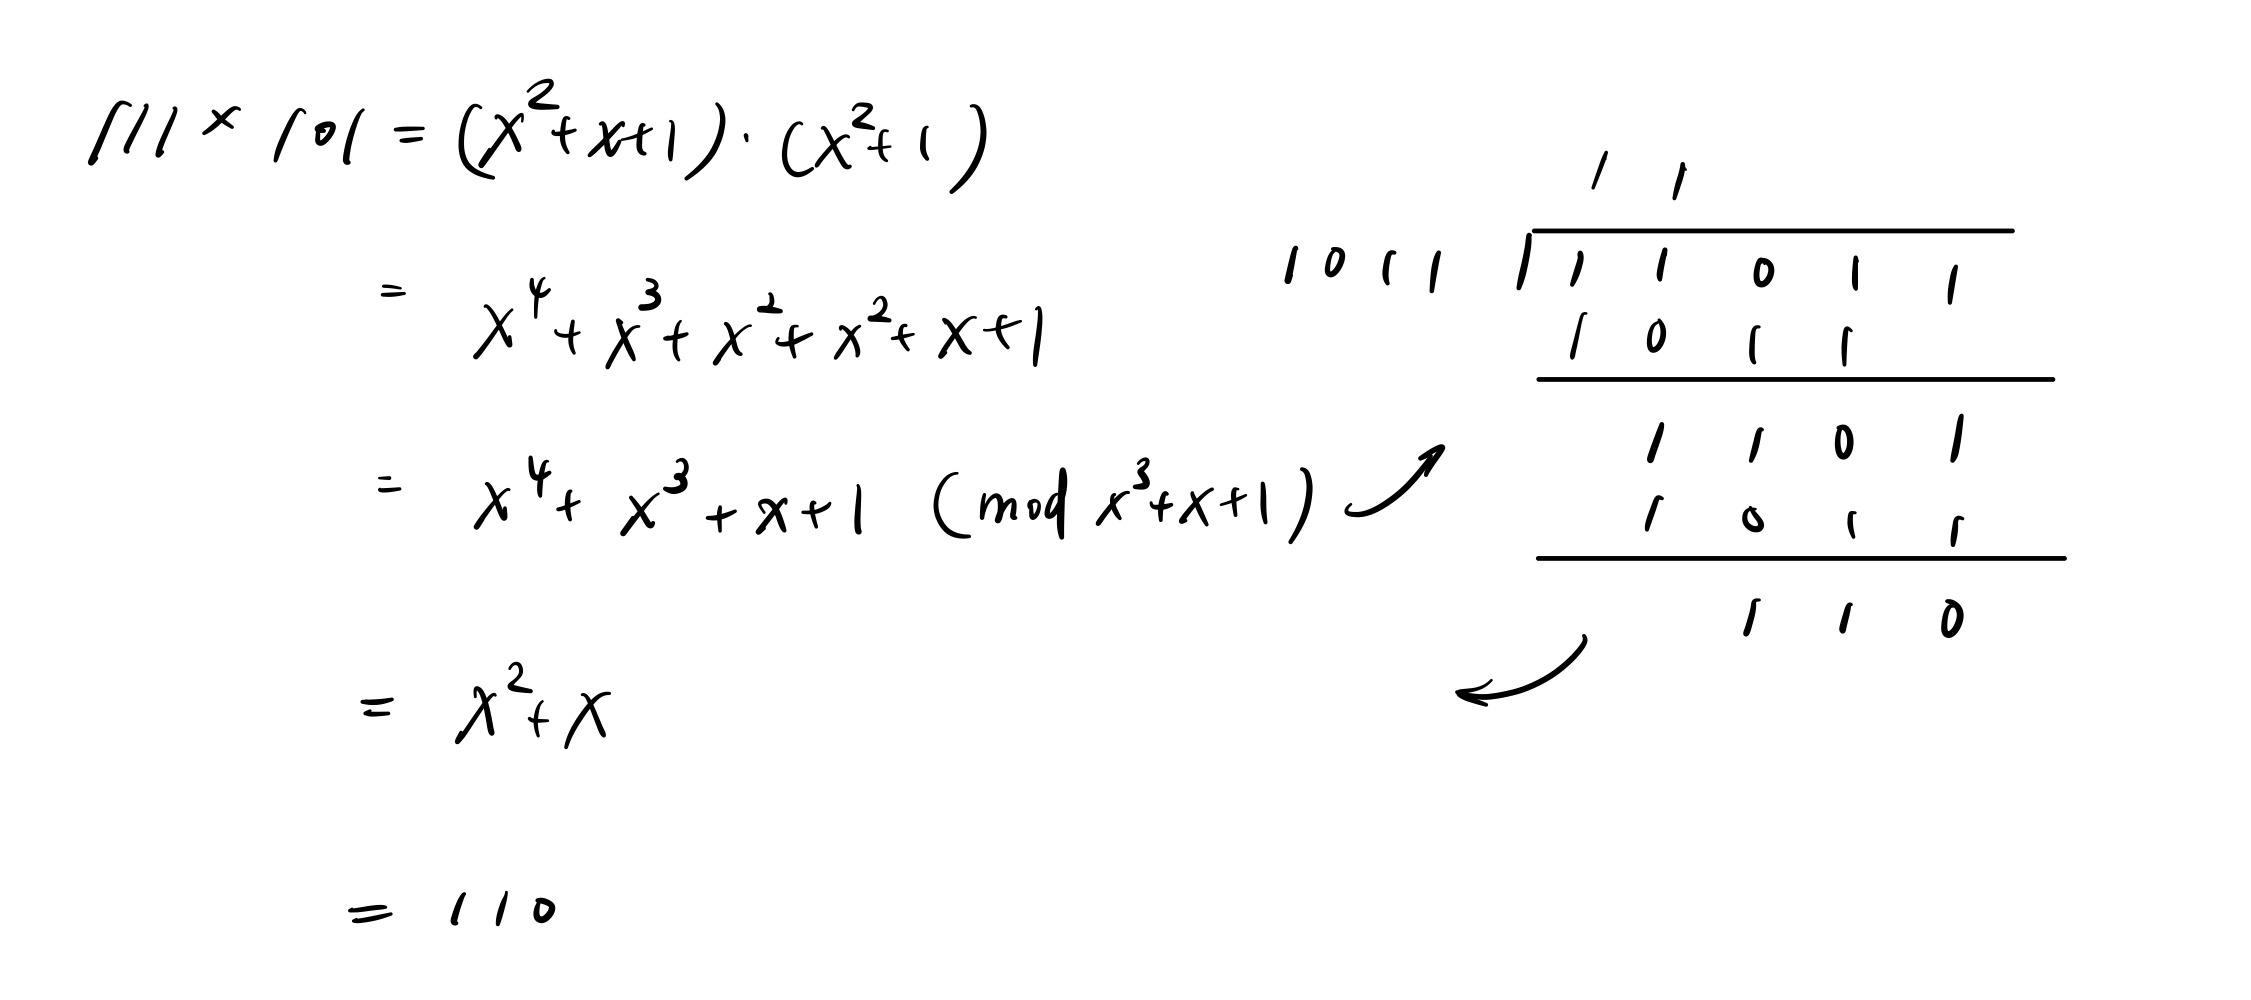 111 × 101 = (x²+x+1)·(x²+1)
= x⁴+x³+x²+x²+x+1
= x⁴+x³+x+1 (mod x³+x+1)
= x²+x
= 110
1 1
1 0 1 1 1 1 0 1 1
1 0 1 1
1 1 0 1
1 0 1 1
1 1 0